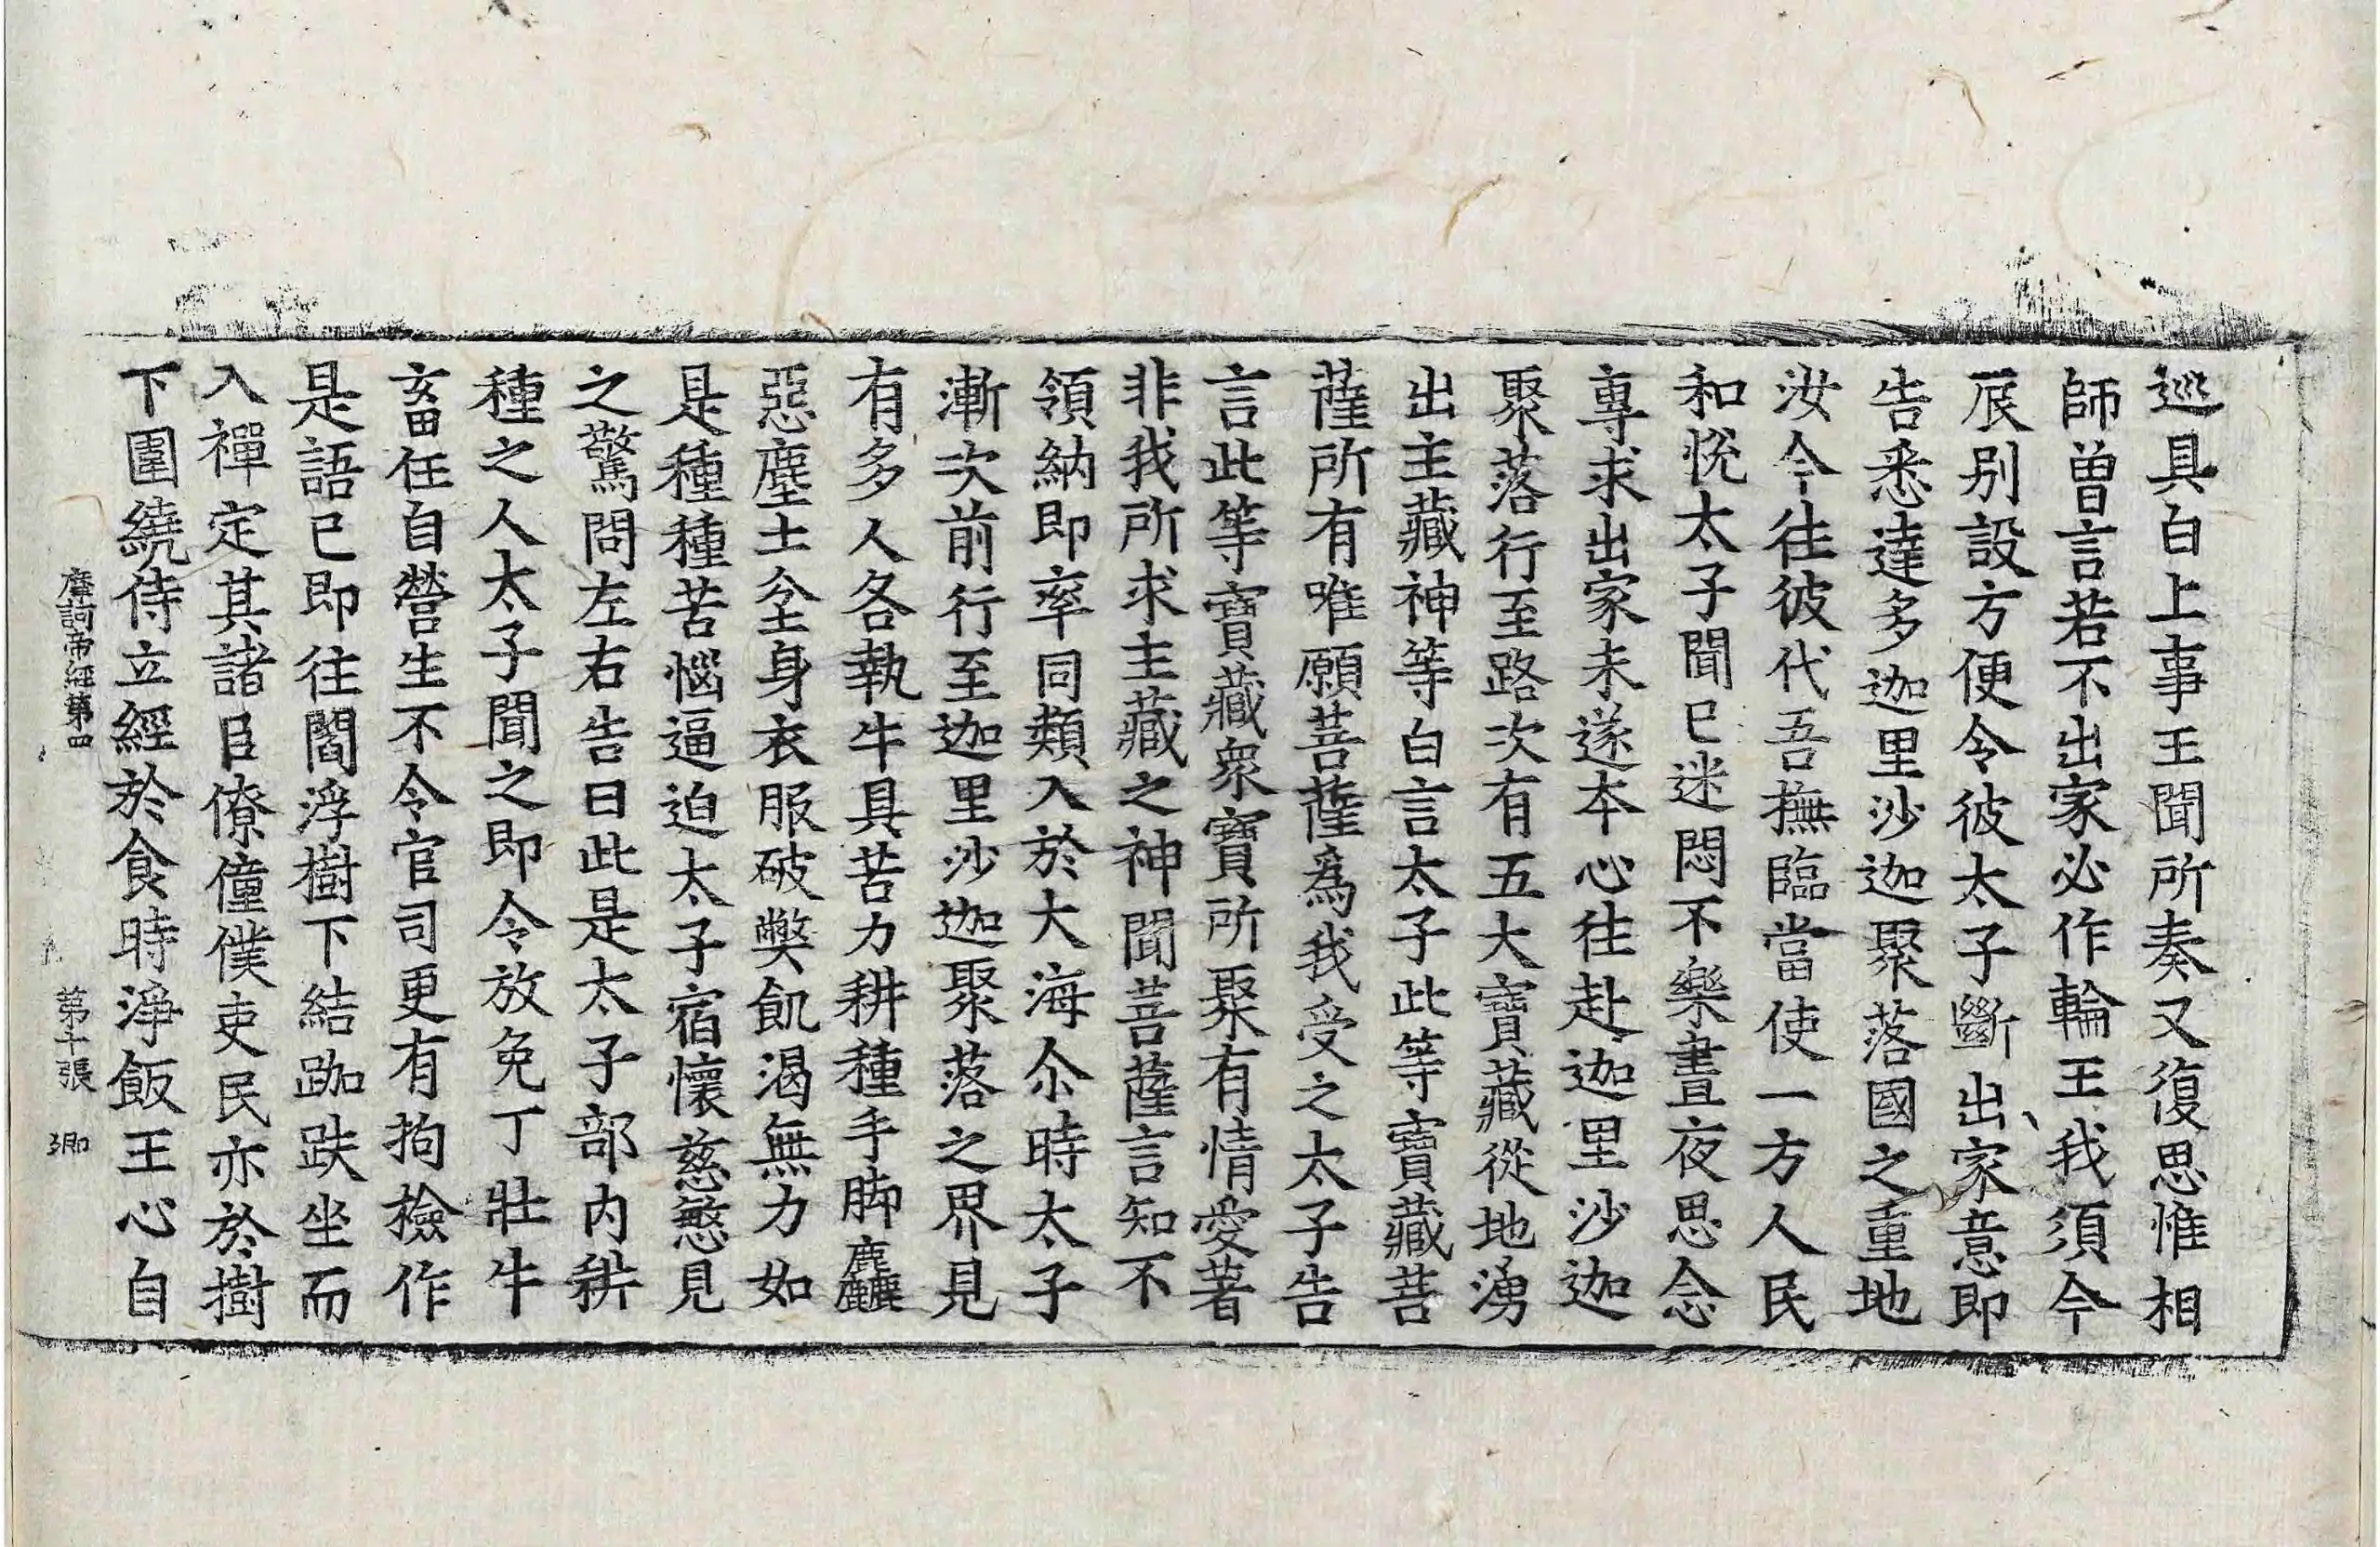 巡具白上事王聞所奏又復思惟相
師曾言若不出家必作輪王我須今
辰別設方便令彼太子斷出家意即
告悉達多迦里沙迦聚落國之重地
汝今往彼代吾撫臨當使一方人民
和悅太子聞已迷悶不樂晝夜思念
專求出家未遂本心往赴迦里沙迦
聚落行至路次有五大寶藏從地湧
出主藏神等白言太子此等寶藏菩
薩所有唯願菩薩爲我受之太子告
言此等寶藏衆寶所聚有情愛著
非我所求主藏之神聞菩薩言知不
領納即率同類入於大海尒時太子
漸次前行至迦里沙迦聚落之界見
有多人各執牛具苦力耕種手脚麤
惡塵土坌身衣服破弊飢渴無力如
是種種苦惱逼迫太子宿懷慈愍見
之驚問左右告曰此是太子部内耕
種之人太子聞之即令放免丁壯牛
畜任自營生不令官司更有拘檢作
是語已即往閻浮樹下結跏趺坐而
入禪定其諸臣僚僮僕吏民亦於樹
下圍繞侍立經於食時淨飯王心自
摩訶帝經第四 第十張 卿